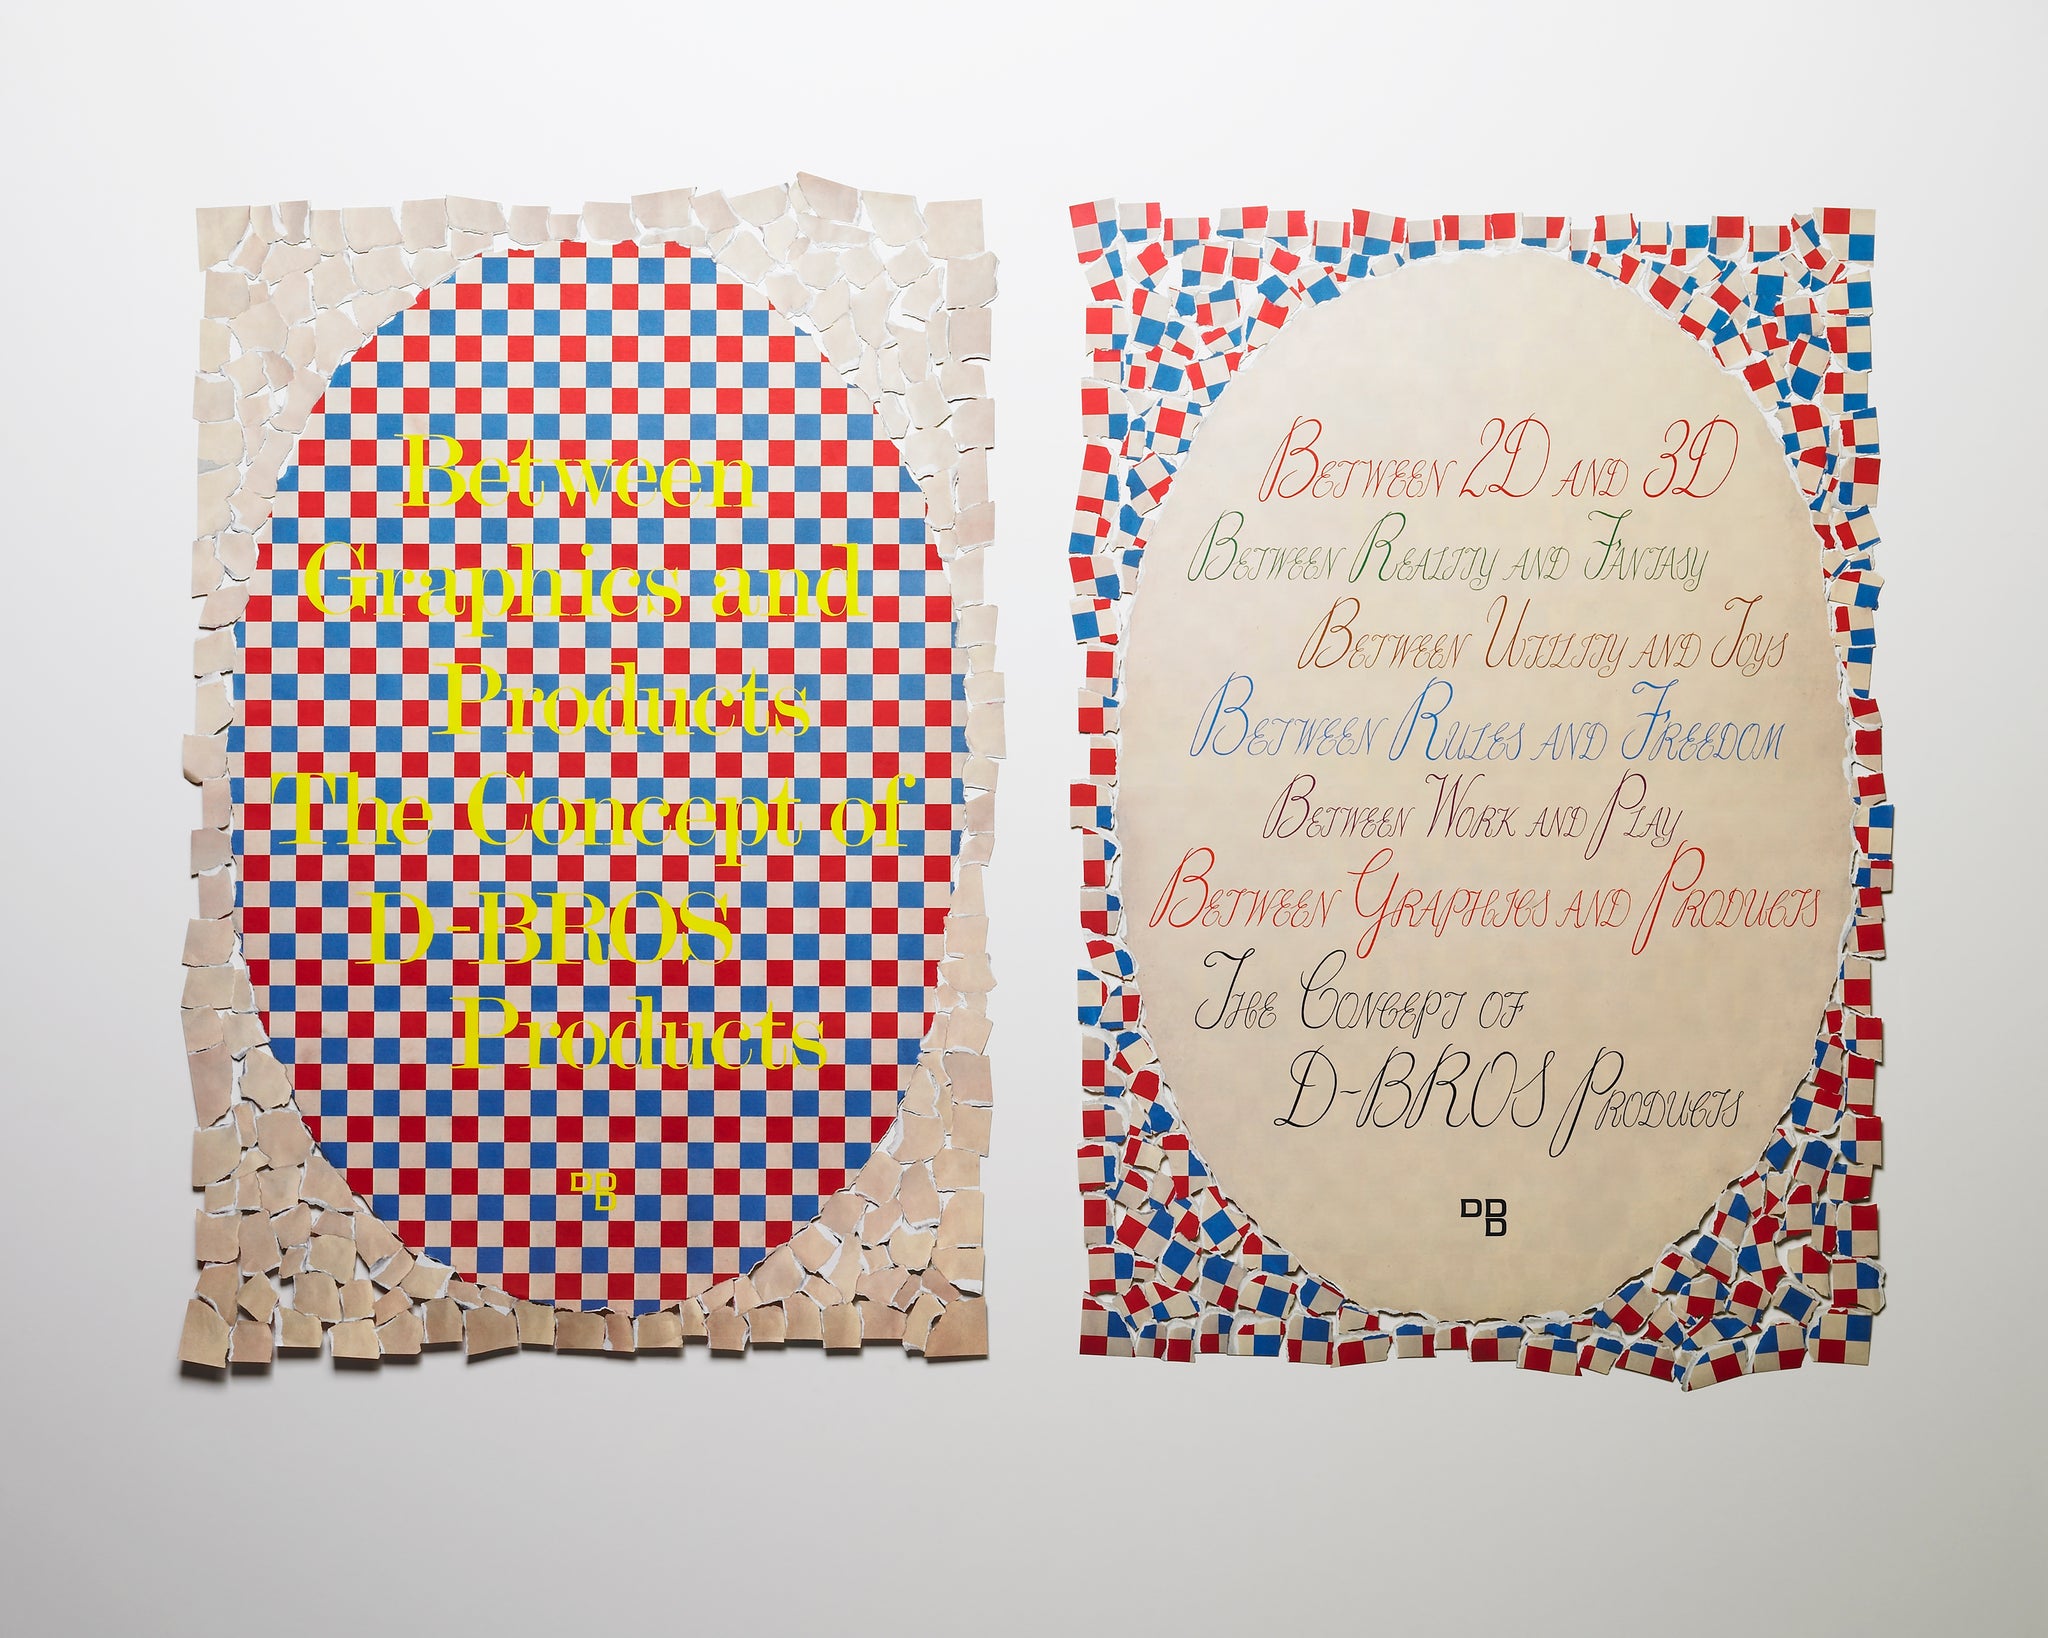 Between
Graphics and
Products
The Concept of
D-BROS
Products
DDB
Between 2D and 3D
Between Reality and Fantasy
Between Utility and Joys
Between Rules and Freedom
Between Work and Play
Between Graphics and Products
The Concept of
D-BROS Products
DDB